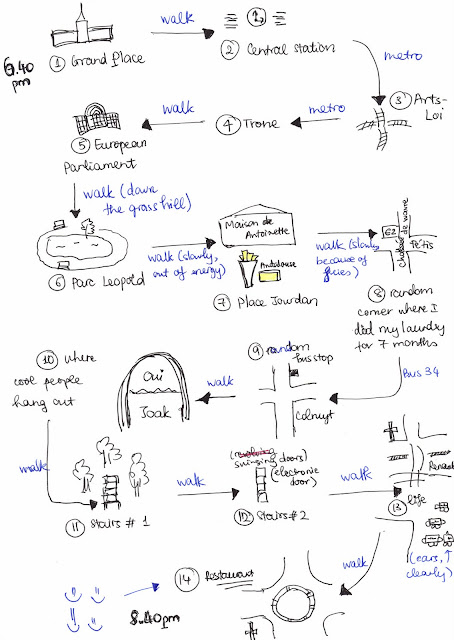 walk
6.40
pm
① Grand Place
② Central station
metro
③ Arts-
Loi
metro
④ Trone
walk
⑤ European
Parliament
walk (down
the grass hill)
⑥ Parc Leopold
walk (slowly,
out of energy)
Maison de
Antoinette
Andalouse
⑦ Place Jourdan
walk (slowly,
because of
fries)
Chaussée de Wavre
Fétis
⑧ random
corner where I
did my laundry
for 7 months
Bus 34
⑨ random
bus stop
Colruyt
walk
Oui
Joak
⑩ where
cool people
hang out
walk
⑪ Stairs # 1
walk
swinging doors)
(electronic
door)
⑫ Stairs # 2
walk
Renault
⑬ life
(cars, ↑
clearly)
walk
⑭ Restaurant
8.40pm